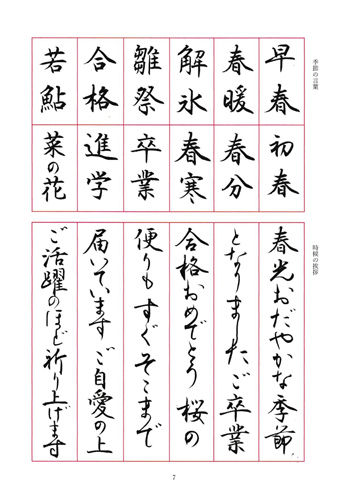 季節の言葉
早春
春暖
解氷
雛祭
合格
若鮎
初春
春分
春寒
卒業
進学
菜の花
時候の挨拶
春光おだやかな季節
となりました ご卒業
合格おめでとう 桜の
便りも すぐそこまで
届いています ご自愛の上
ご活躍のほど祈り上げます
7